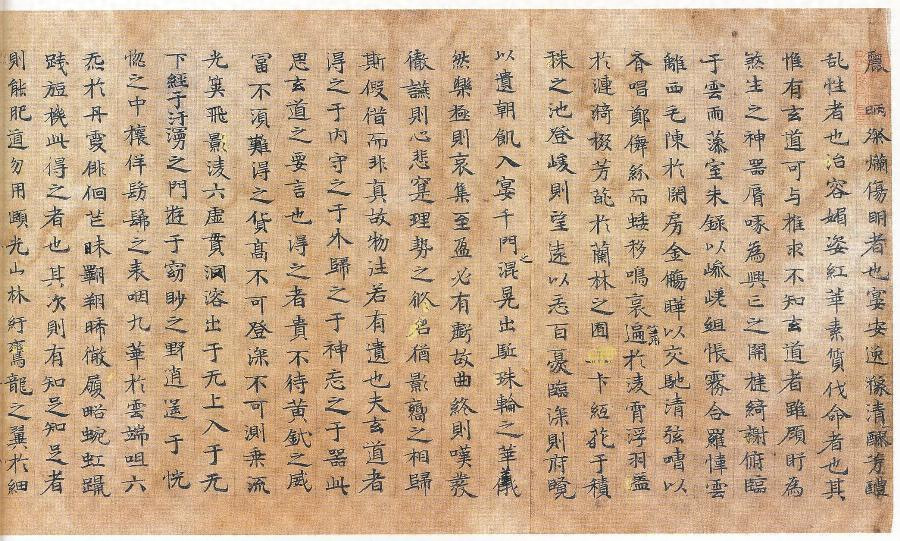 麗昞粲爛傷明者也宴安逸豫清醪芳醴
乱性者也冶容媚姿紅華素質伐命者也其
惟有玄道可与推求不知玄道者雖顧盻為
煞生之神器脣啄為興亡之關揵綺榭俯臨
于雲而藻室朱錄以嵾嵯組帳霧合羅幬雲
離西毛陳於閑房金觴曄以交馳清弦嘈以
唱鄭儛絲而蜲移鳴哀簫遍於淩霄浮羽蓋
於漣漪掇芳花於蘭林之囿卞紅葩于積
珠之池登峻則望遠以忘百憂臨深則府覽
以遺朝飢入宴千門之混晃出駈珠輪之華儀
然樂極則哀集至盈必有虧故曲終則嘆發
徹讌則心悲寔理勢之攸召猶影嚮之相歸
斯假借而非真故物往若有遺也夫玄道者
得之于內守之于外歸之于神忘之于器此
思玄道之要言也得之者貴不待黃鉞之威
富不須難得之貨高不可登深不可測乘流
光筞飛影淩六虛貫洞溶出于无上入于无
下經于汗湧之門遊于窈眇之野逍遥于恍
惚之中穰佯髣髴之表咽九華於雲端咀六
炁於丹霞俳佪芒昧翺翔晞微履略蜿虹躡
踐旋機此得之者也其次則有知足知足者
則能肥遁勿用頤光山林紆鸞龍之翼於細